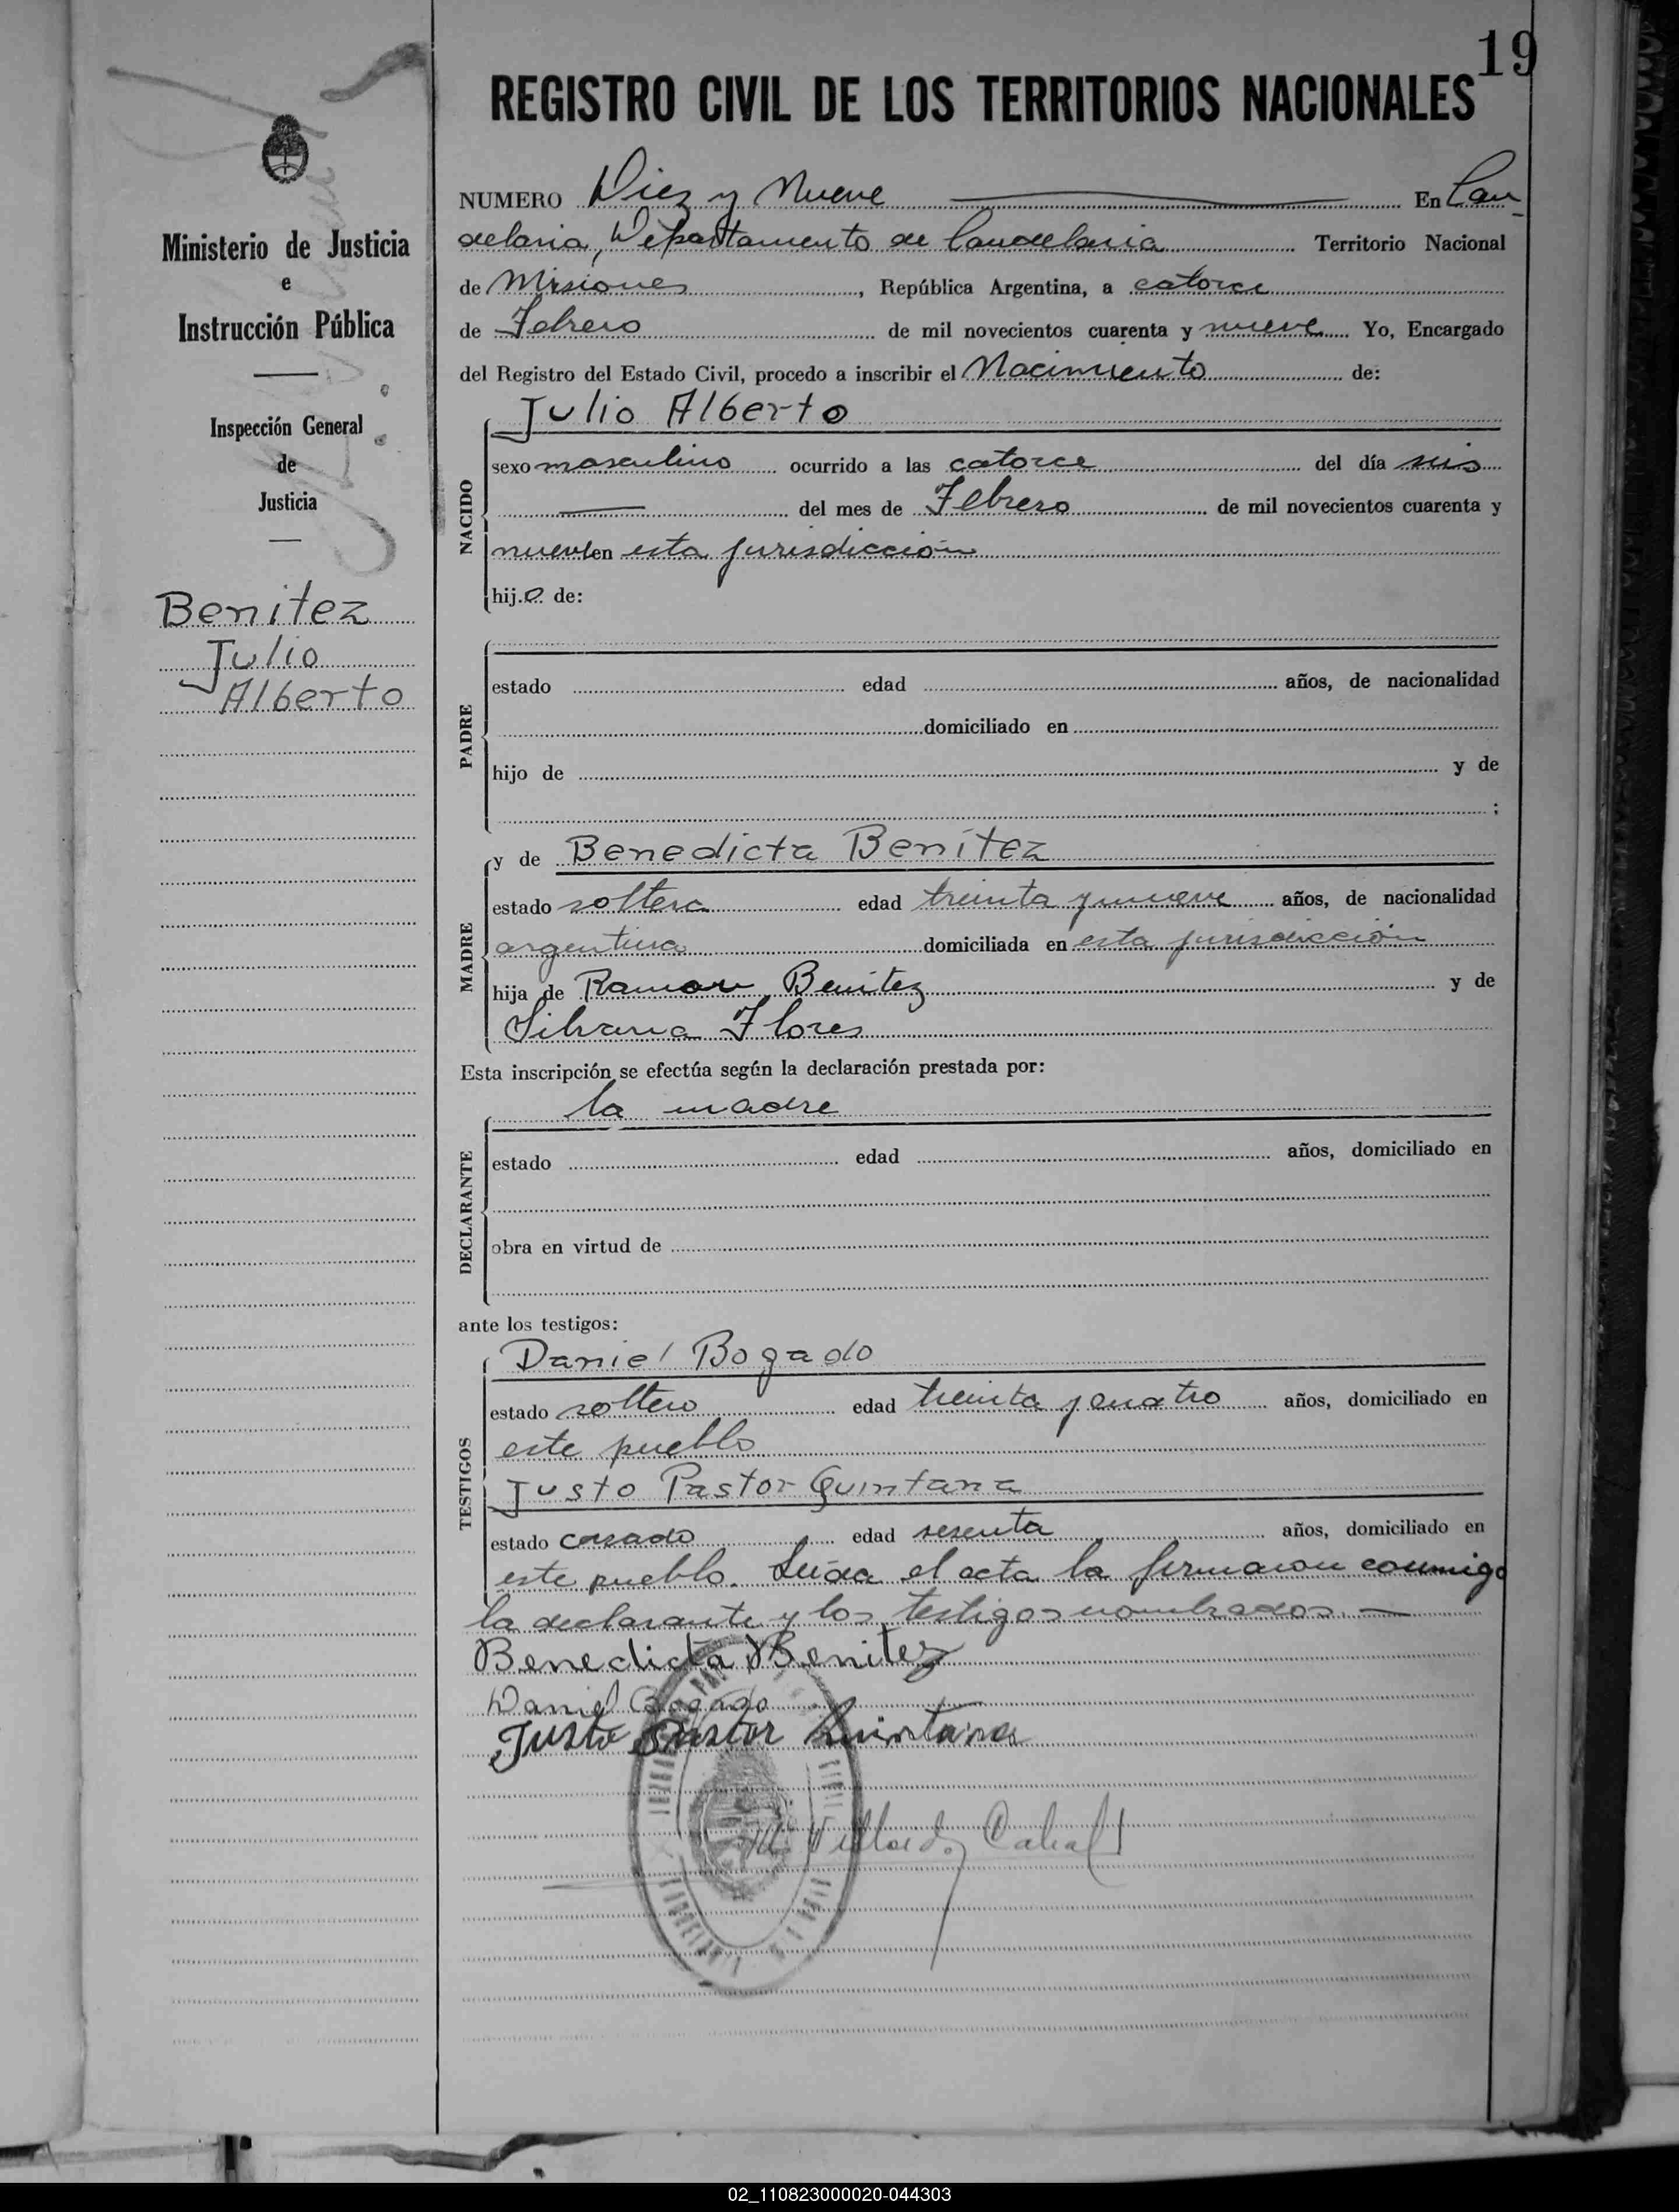 19
REGISTRO CIVIL DE LOS TERRITORIOS NACIONALES
Ministerio de Justicia
e
Instrucción Pública
Inspección General
de
Justicia
Benitez
Julio
Alberto
NUMERO Diez y Nueve En Can
delaria, Departamento de Candelaria Territorio Nacional
de Misiones, República Argentina, a catorce
de Febrero de mil novecientos cuarenta y nueve Yo, Encargado
del Registro del Estado Civil, procedo a inscribir el Nacimiento de:
NACIDO
Julio Alberto
sexo masculino ocurrido a las catorce del día seis
del mes de Febrero de mil novecientos cuarenta y
nueve en esta jurisdicción
hijo de:
PADRE
estado edad años, de nacionalidad
domiciliado en
hijo de y de
;
MADRE
y de Benedicta Benítez
estado soltera edad treinta y nueve años, de nacionalidad
argentina domiciliada en esta jurisdicción
hija de Ramon Benitez y de
Silvana Flores
Esta inscripción se efectúa según la declaración prestada por:
la madre
DECLARANTE
estado edad años, domiciliado en
obra en virtud de
ante los testigos:
TESTIGOS
Daniel Bogado
estado soltero edad treinta y cuatro años, domiciliado en
este pueblo
Justo Pastor Quintana
estado casado edad sesenta años, domiciliado en
este pueblo. Leída el acta la firmaron conmigo
la declarante y los testigos nombrados. —
Benedicta Benitez
Daniel Bogado
Justo Pastor Quintana
Cabral
02_110823000020-044303